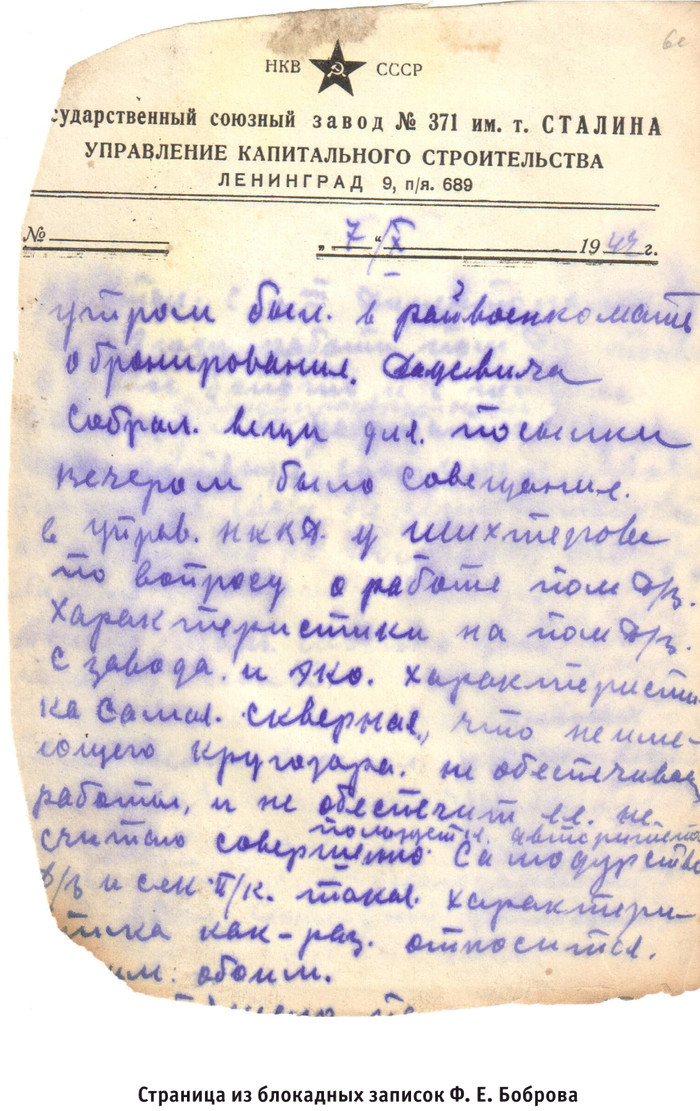 6е
НКВ СССР
сударственный союзный завод № 371 им. т. СТАЛИНА
УПРАВЛЕНИЕ КАПИТАЛЬНОГО СТРОИТЕЛЬСТВА
ЛЕНИНГРАД 9, п/я. 689
№ „ 7 “ / X 194 г.
утром был. в райвоенкомате
о бронировании.
собрал. вещи для. посылки
вечером было совещания.
в управ. у Шихтерова
по вопросу о работе пом д/з.
Характеристики на пом д/з.
с завода. и эко. характеристи
ка самая. скверная, что не име-
ющего кругозара. не обеспечивае
работы, и не обеспечит ее. не
пользуется. авторитето
считаю совершенно Самодурство
д/з и сек п/к. такая. характери-
тика как-раз. относится.
им. обоим.
Страница из блокадных записок Ф. Е. Боброва